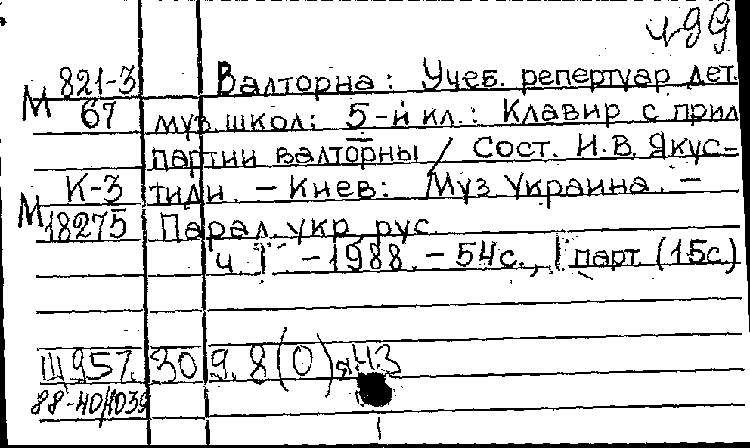 ч99
М 821-3 Валторна: Учеб. репертуар дет.
67 муз. школ: 5-й кл.: Клавир с прил
партии валторны / Сост. И.В. Якус-
М К-3 тиди. - Киев: Муз Украина. -
18275 Парал. укр. рус.
ч. I - 1988. - 54с., 1 парт. (15с.)
Щ957.309.8(0)я43
88-40/1039